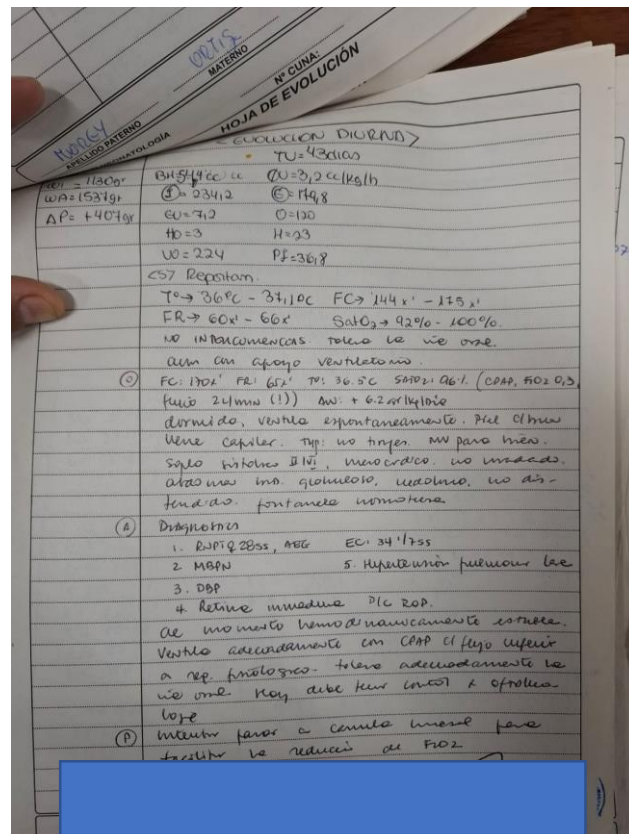 ORTIZ
MATERNO
Nº CUNA:
HOJA DE EVOLUCIÓN
APELLIDO PATERNO
<EVOLUCION DIURNA>
TV=43dias
= 1130gr
WA=1537gr
AP= +407gr
BH cc QU=3,2 cc/kg/h
I= 234,2 E=179,8
EU=7,2 O=120
HO=3 H=23
VO=224 Pf=36,8
Tº→ 36ºC - 37,1ºC FC→ 144x' - 175x'
FR→ 60x' - 66x' SatO2→ 92% - 100%.
NO tolera la vie oral
aun con apoyo ventilatorio.
O FC: 170x' FR: 65x' Tº: 36.5ºC SATO2: 96% (CPAP, FIO2 0,3
flujo 2L/min (!)) ΔW: + 6.2 gr/kg/dia
dormido, ventila espontaneamente. Piel c/buen
llene capilar. no tirajes. MV pasa bien.
Soplo sistolico II/VI, no irradiado.
globuloso, no dis-
tendido. fontanela normotensa
A Diagnosticos
1. RNPT 28ss, AEG EC: 34 1/7ss
2 MBPN 5. Hipertensión pulmonar leve
3. DBP
4. Retina inmadura D/C ROP.
de momento hemodinamicamente estable.
Ventila adecuadamente con CPAP c/ flujo inferior
a fisiologico. tolera adecuadamente la
vie oral Hoy debe tener control x oftalmo
logo
P intentar pasar a canula nasal para
facilitar la reducción de FIO2